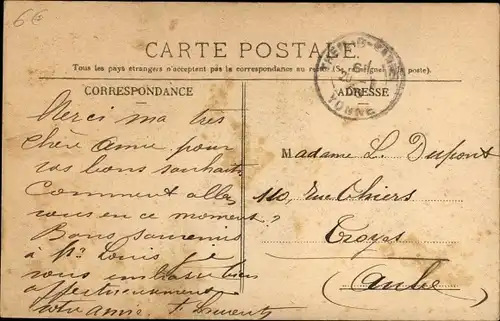 6€
CARTE POSTALE
Tous les pays étrangers n'acceptent pas la correspondance au recto (Se renseigner à la poste).
CORRESPONDANCE
Merci ma très
chère amie pour
vos bons souhaits
Comment allez
vous en ce moment?
Bons souvenirs
à Mr Louis Je
vous embrasse bien
affectueusement
votre amie
ADRESSE
YONNE
Madame L. Dupont
110, rue Thiers
Troyes
(Aube)